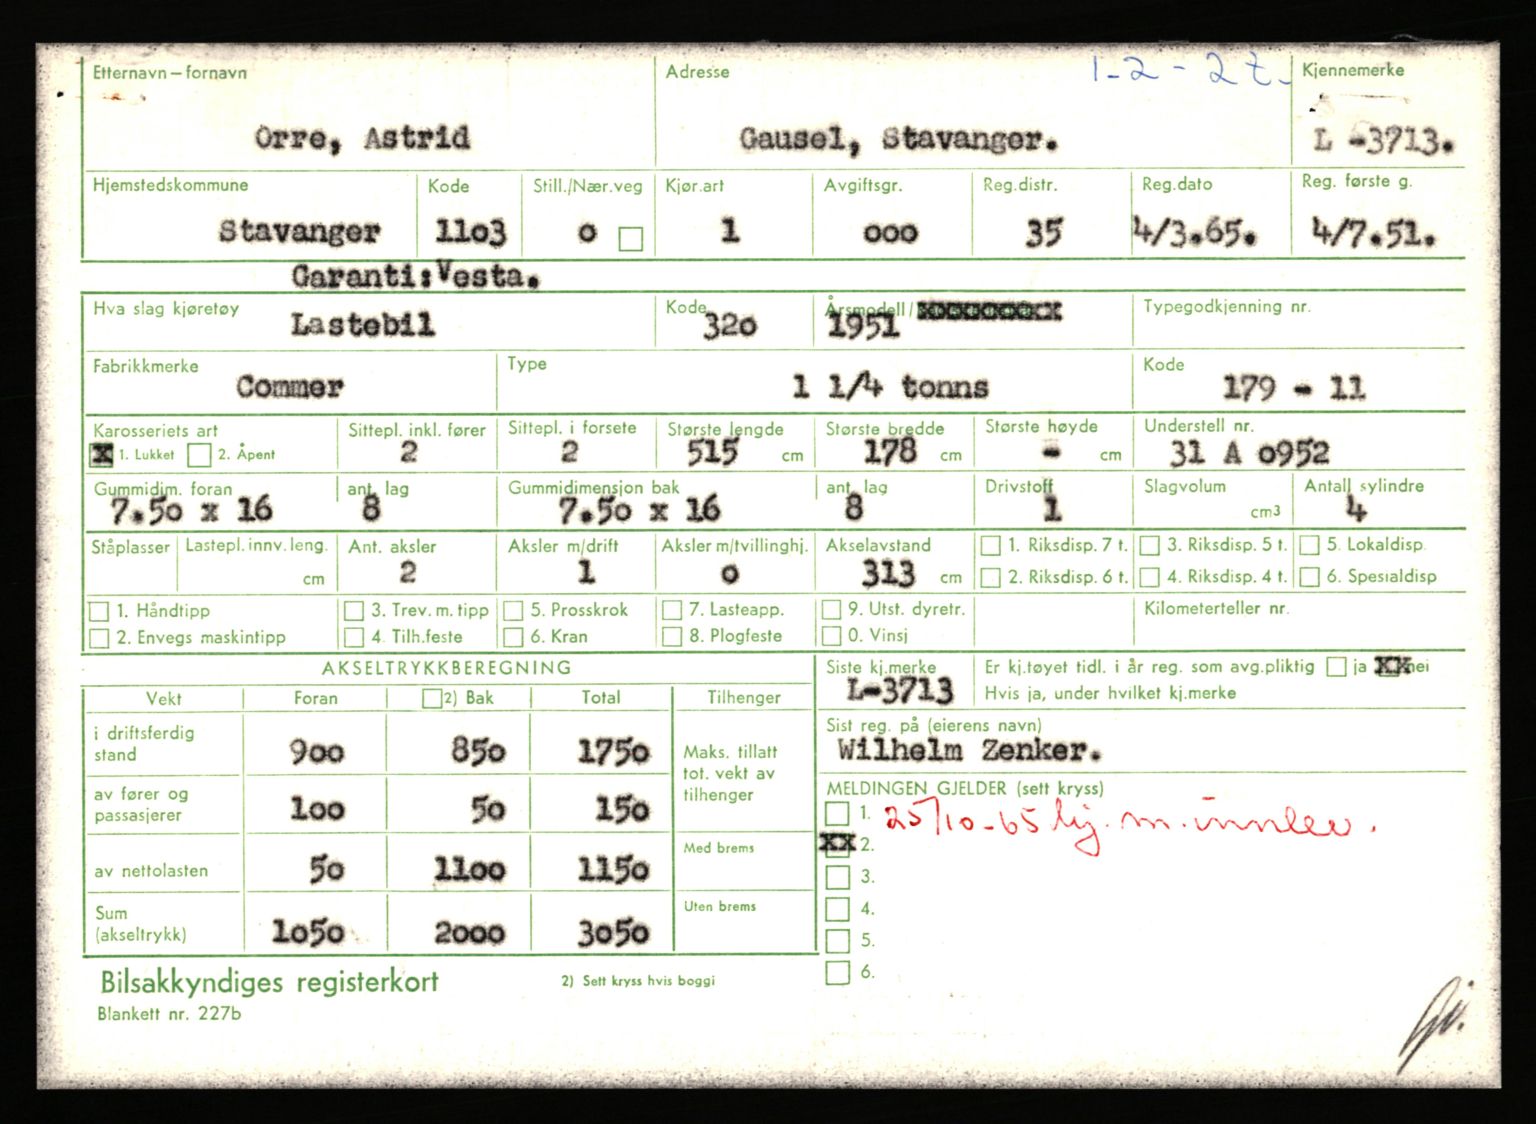 Etternavn – fornavn Adresse 1-2-27. Kjennemerke
Orre, Astrid Gausel, Stavanger. L -3713.
Hjemstedskommune Kode Still./Nær.veg Kjør.art Avgiftsgr. Reg.distr. Reg.dato Reg. første g.
Stavanger 11o3 o 1 ooo 35 4/3.65. 4/7.51.
Garanti:Vesta.
Hva slag kjøretøy Kode Årsmodell/ xxxxxxxxx Typegodkjenning nr.
Lastebil 32o 1951
Fabrikkmerke Type Kode
Commer 1 1/4 tonns 179 - 11
Karosseriets art Sittepl. inkl. fører Sittepl. i forsete Største lengde Største bredde Største høyde Understell nr.
X 1. Lukket 2. Åpent 2 2 515 cm 178 cm - cm 31 A o952
Gummidim. foran ant. lag Gummidimensjon bak ant. lag Drivstoff Slagvolum Antall sylindre
7.5o x 16 8 7.5o x 16 8 1 cm3 4
Ståplasser Lastepl. innv. leng. Ant. aksler Aksler m/drift Aksler m/tvillinghj. Akselavstand 1. Riksdisp. 7 t. 3. Riksdisp. 5 t. 5. Lokaldisp.
cm 2 1 o 313 cm 2. Riksdisp. 6 t. 4. Riksdisp. 4 t. 6. Spesialdisp
1. Håndtipp 3. Trev. m. tipp 5. Prosskrok 7. Lasteapp. 9. Utst. dyretr. Kilometerteller nr.
2. Envegs maskintipp 4. Tilh.feste 6. Kran 8. Plogfeste 0. Vinsj
AKSELTRYKKBEREGNING Siste kj.merke Er kj.tøyet tidl. i år reg. som avg.pliktig ja XX nei
L-3713 Hvis ja, under hvilket kj.merke
Vekt Foran 2) Bak Total Tilhenger
Sist reg. på (eierens navn)
Wilhelm Zenker.
i driftsferdig stand 9oo 85o 175o Maks. tillatt tot. vekt av tilhenger
MELDINGEN GJELDER (sett kryss)
av fører og passasjerer 1oo 5o 15o
1. 25/10-65 kj. m. innlev.
Med brems XX 2.
av nettolasten 5o 11oo 115o
3.
Uten brems 4.
Sum (akseltrykk) 1o5o 2ooo 3o5o
5.
6.
Bilsakkyndiges registerkort 2) Sett kryss hvis boggi
Blankett nr. 227b